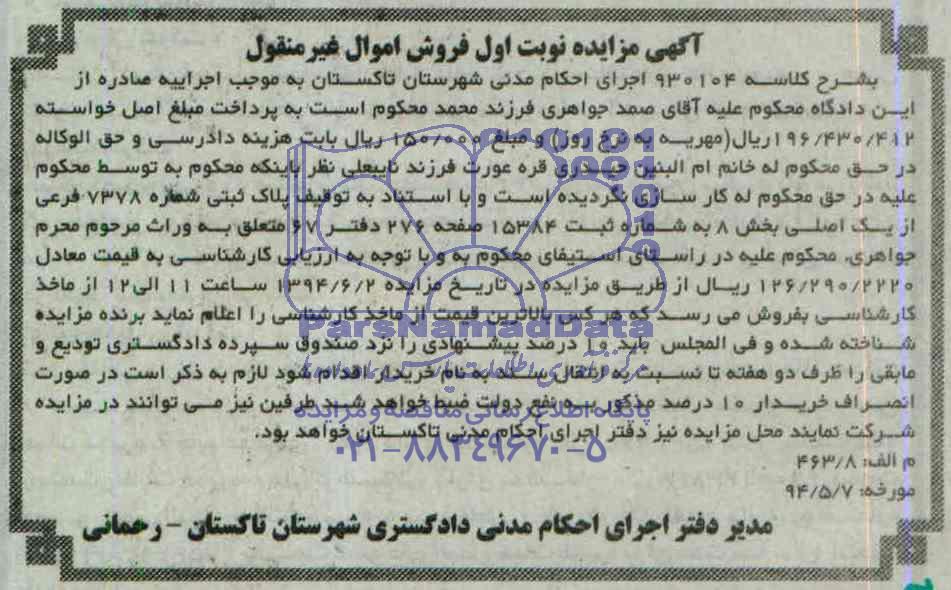 آگهی مزایده نوبت اول فروش اموال غیرمنقول
بشرح کلاسه ۹۳۰۱۰۴ اجرای احکام مدنی شهرستان تاکستان به موجب اجراییه صادره از
این دادگاه محکوم علیه آقای صمد جواهری فرزند محمد محکوم است به پرداخت مبلغ اصل خواسته
۱۹۶/۴۳۰/۴۱۲ ریال(مهریه به نرخ روز) و مبلغ ۱۵۰/۰۰۰ ریال بابت هزینه دادرسی و حق الوکاله
در حق محکوم له خانم ام البنین حیدری قره عورت فرزند نایبعلی نظر باینکه محکوم به توسط محکوم
علیه در حق محکوم له کار سازی نگردیده است و با استناد به توقیف پلاک ثبتی شماره ۷۳۷۸ فرعی
از یک اصلی بخش ۸ به شماره ثبت ۱۵۳۸۴ صفحه ۲۷۶ دفتر ۶۷ متعلق به وراث مرحوم محرم
جواهری، محکوم علیه در راستای استیفای محکوم به و با توجه به ارزیابی کارشناسی به قیمت معادل
۱۲۶/۲۹۰/۲۲۲۰ ریال از طریق مزایده در تاریخ مزایده ۱۳۹۴/۶/۲ ساعت ۱۱ الی ۱۲ از ماخذ
کارشناسی بفروش می رسد که هر کس بالاترین قیمت از ماخذ کارشناسی را اعلام نماید برنده مزایده
شناخته شده و فی المجلس باید ۱۰ درصد پیشنهادی را نزد صندوق سپرده دادگستری تودیع و
مابقی را ظرف دو هفته تا نسبت به انتقال سند به نام خریدار اقدام شود لازم به ذکر است در صورت
انصراف خریدار ۱۰ درصد مذکور به نفع دولت ضبط خواهد شد طرفین نیز می توانند در مزایده
شرکت نمایند محل مزایده نیز دفتر اجرای احکام مدنی تاکستان خواهد بود.
م الف: ۴۶۳/۸
مورخه: ۹۴/۵/۷
مدیر دفتر اجرای احکام مدنی دادگستری شهرستان تاکستان - رحمانی
ParsNamadData
پایگاه اطلاع رسانی مناقصه و مزایده
۰۲۱-۸۸۳۴۹۶۷۰-۵